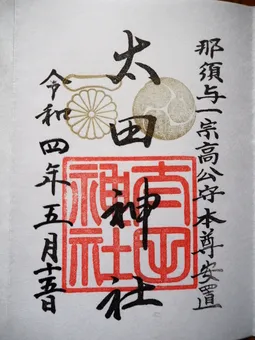 那須与一宗高公守本尊安置
太田神社
令和四年五月十五日
太田
神社